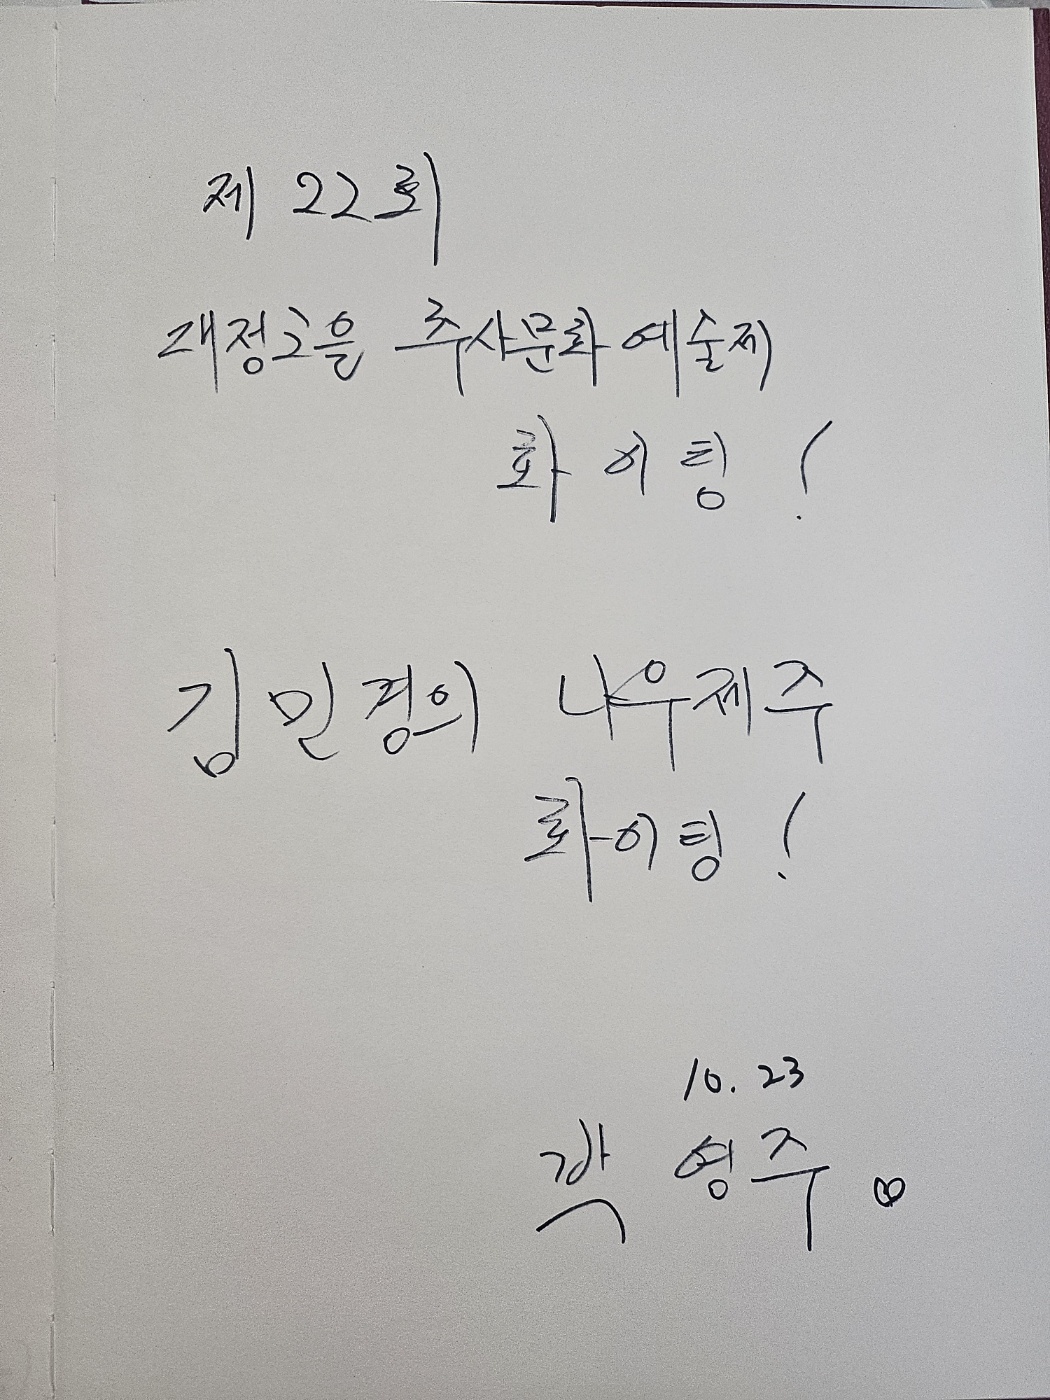 제 22회
대정고을 추사문화예술제
화이팅!
김민경의 나우제주
화이팅!
10. 23
곽영주 ♡